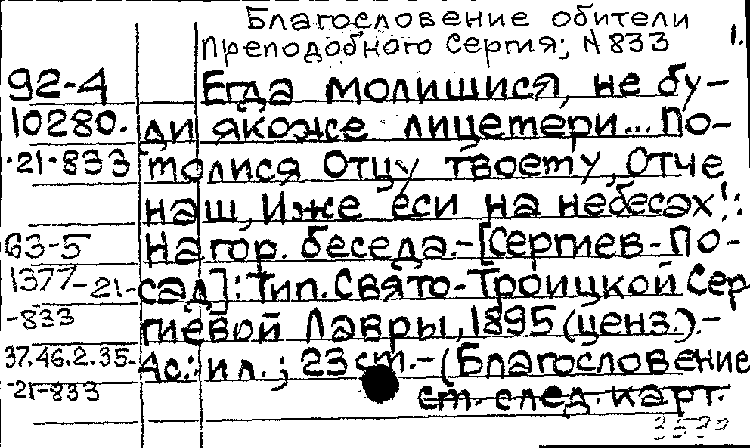 Благословение обители
Преподобного Сергия; N 833
1.
92-4 Егда молишися, не бу-
10280. ди якоже лицемери... По-
·21-833 молися Отцу твоему, Отче
наш, Иже еси на небесах!:
63-5 Нагор. беседа.-[Сергиев-По-
1377-21- сад]: Тип. Свято-Троицкой Сер
-833 гиевой Лавры, 1895 (ценз.).-
37.46.2.35- 4с.: ил.; 23 см.-(Благословение
21-833 см. след. карт.